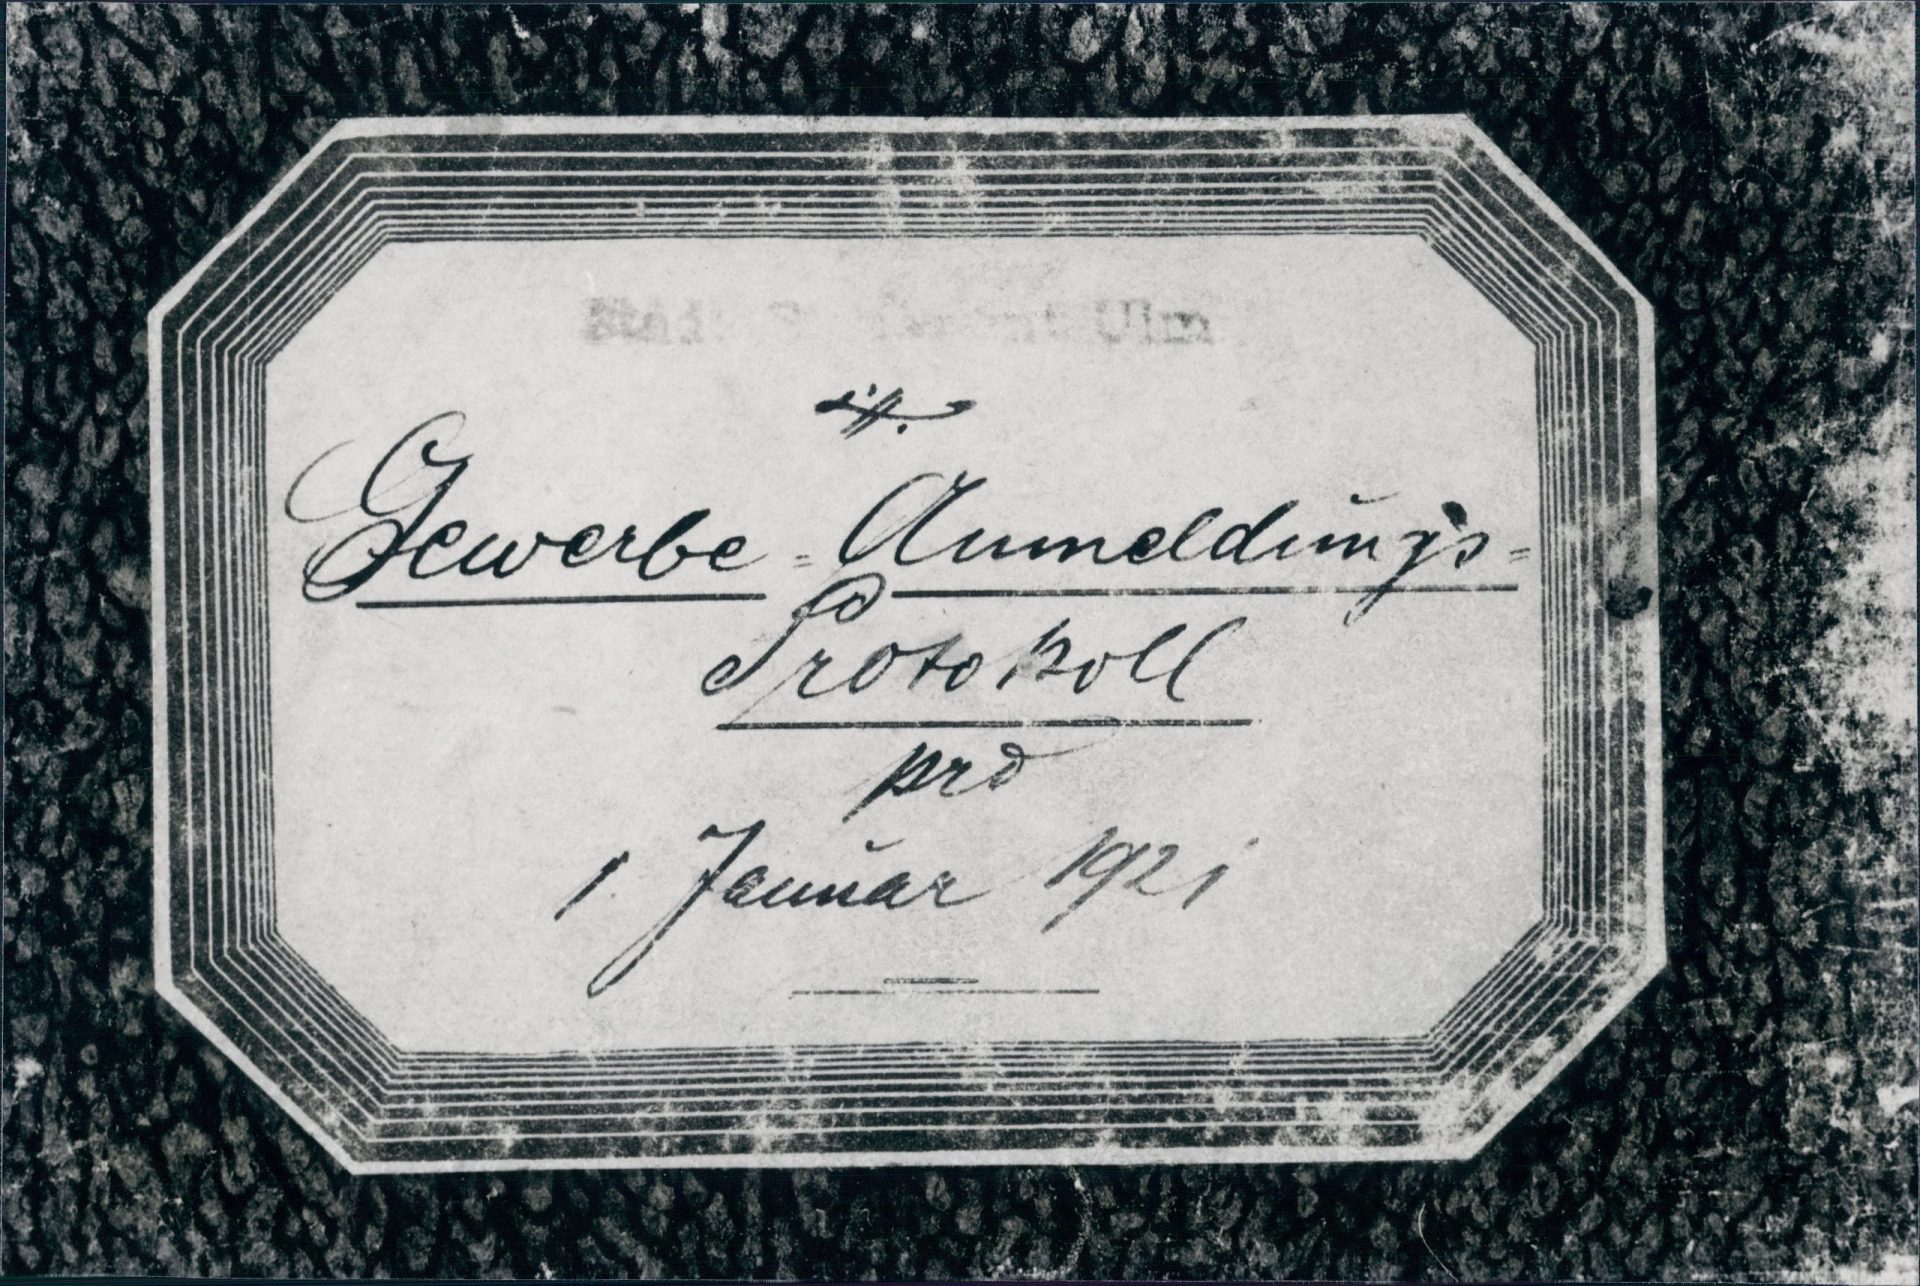 Städt. Ulm
Gewerbe=Anmeldungs=
Protokoll
pro
1. Januar 1921